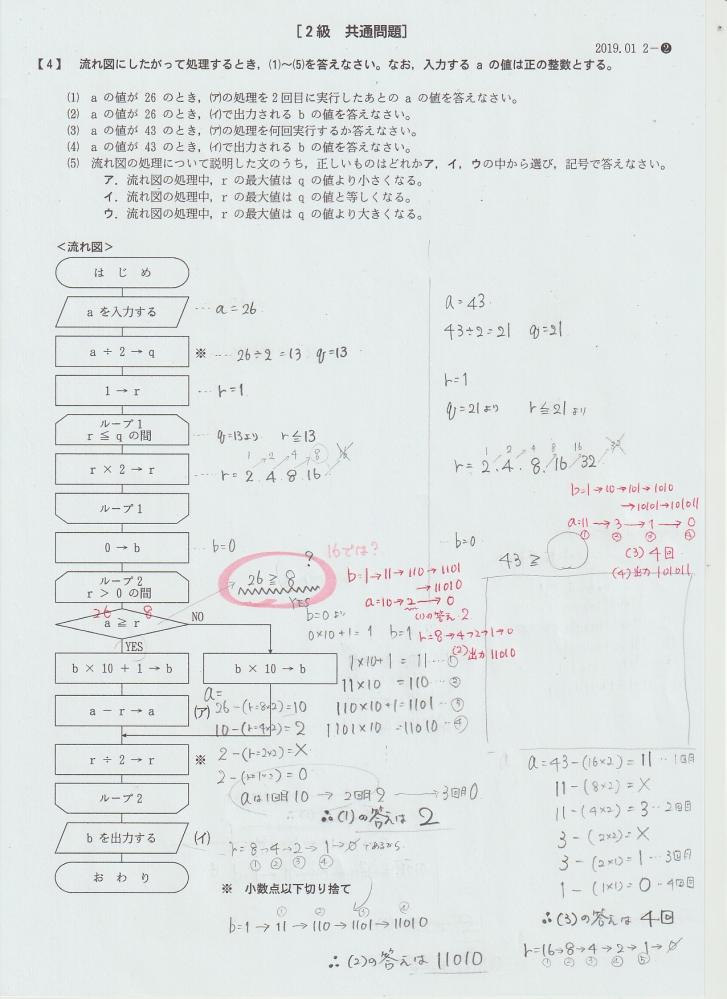 [2級 共通問題]
2019.01 2−❷
【4】 流れ図にしたがって処理するとき，(1)〜(5)を答えなさい。なお，入力する a の値は正の整数とする。
(1) a の値が 26 のとき，(ア)の処理を2回目に実行したあとの a の値を答えなさい。
(2) a の値が 26 のとき，(イ)で出力される b の値を答えなさい。
(3) a の値が 43 のとき，(ア)の処理を何回実行するか答えなさい。
(4) a の値が 43 のとき，(イ)で出力される b の値を答えなさい。
(5) 流れ図の処理について説明した文のうち，正しいものはどれかア，イ，ウの中から選び，記号で答えなさい。
ア．流れ図の処理中，r の最大値は q の値より小さくなる。
イ．流れ図の処理中，r の最大値は q の値と等しくなる。
ウ．流れ図の処理中，r の最大値は q の値より大きくなる。
<流れ図>
はじめ
a を入力する
a ÷ 2 → q
※
1 → r
ループ1
r ≦ q の間
r × 2 → r
ループ1
0 → b
ループ2
r > 0 の間
a ≧ r
26 8
NO
YES
b × 10 + 1 → b
b × 10 → b
a − r → a
(ア)
r ÷ 2 → r
※
ループ2
b を出力する
(イ)
おわり
※ 小数点以下切り捨て
a = 26
26÷2 = 13 q=13
r=1
q=13より r≦13
1 2 4 8
r= 2. 4. 8. 16
b=0
26 ≧ 8
?
YES
16では?
b=1→11→110→1101
→11010
a=10→2→0
(1)の答え 2
r=8→4→2→1→0
(2)出力 11010
b=0より
0×10+1= 1 b=1
1×10+1 = 11 … ①
11×10 = 110 … ②
110×10+1= 1101 … ③
1101×10 =11010 … ④
a=
26−(r=8×2)=10
10−(r=4×2)= 2
2−(r=2×2)=×
2−(r=1×2) = 0
aは1回目10 → 2回目2 → 3回目0
∴(1)の答えは 2
r=8→4→2→1→0であるから
① ② ③ ④
① ② ③ ④
b=1 → 11 → 110 → 1101 → 11010
∴(2)の答えは 11010
a=43
43÷2=21 q=21
r=1
q=21より r≦21より
1 2 4 8 16 32
r= 2. 4. 8. 16 32
b=1→10→101→1010
→10101→101011
a=11→3→1→0
① ② ③ ④
(3) 4回
(4)出力 101011
b=0
43 ≧
a=43−(16×2)= 11 … 1回目
11−(8×2)= ×
11−(4×2)= 3 … 2回目
3−(2×2)= ×
3−(2×1)= 1 … 3回目
1−(1×1)= 0 … 4回目
∴(3)の答えは 4回
r=16→8→4→2→1→0
① ② ③ ④ ⑤